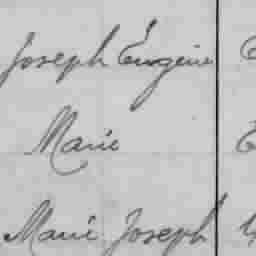 Joseph Eugène
Marie
Marie Joseph